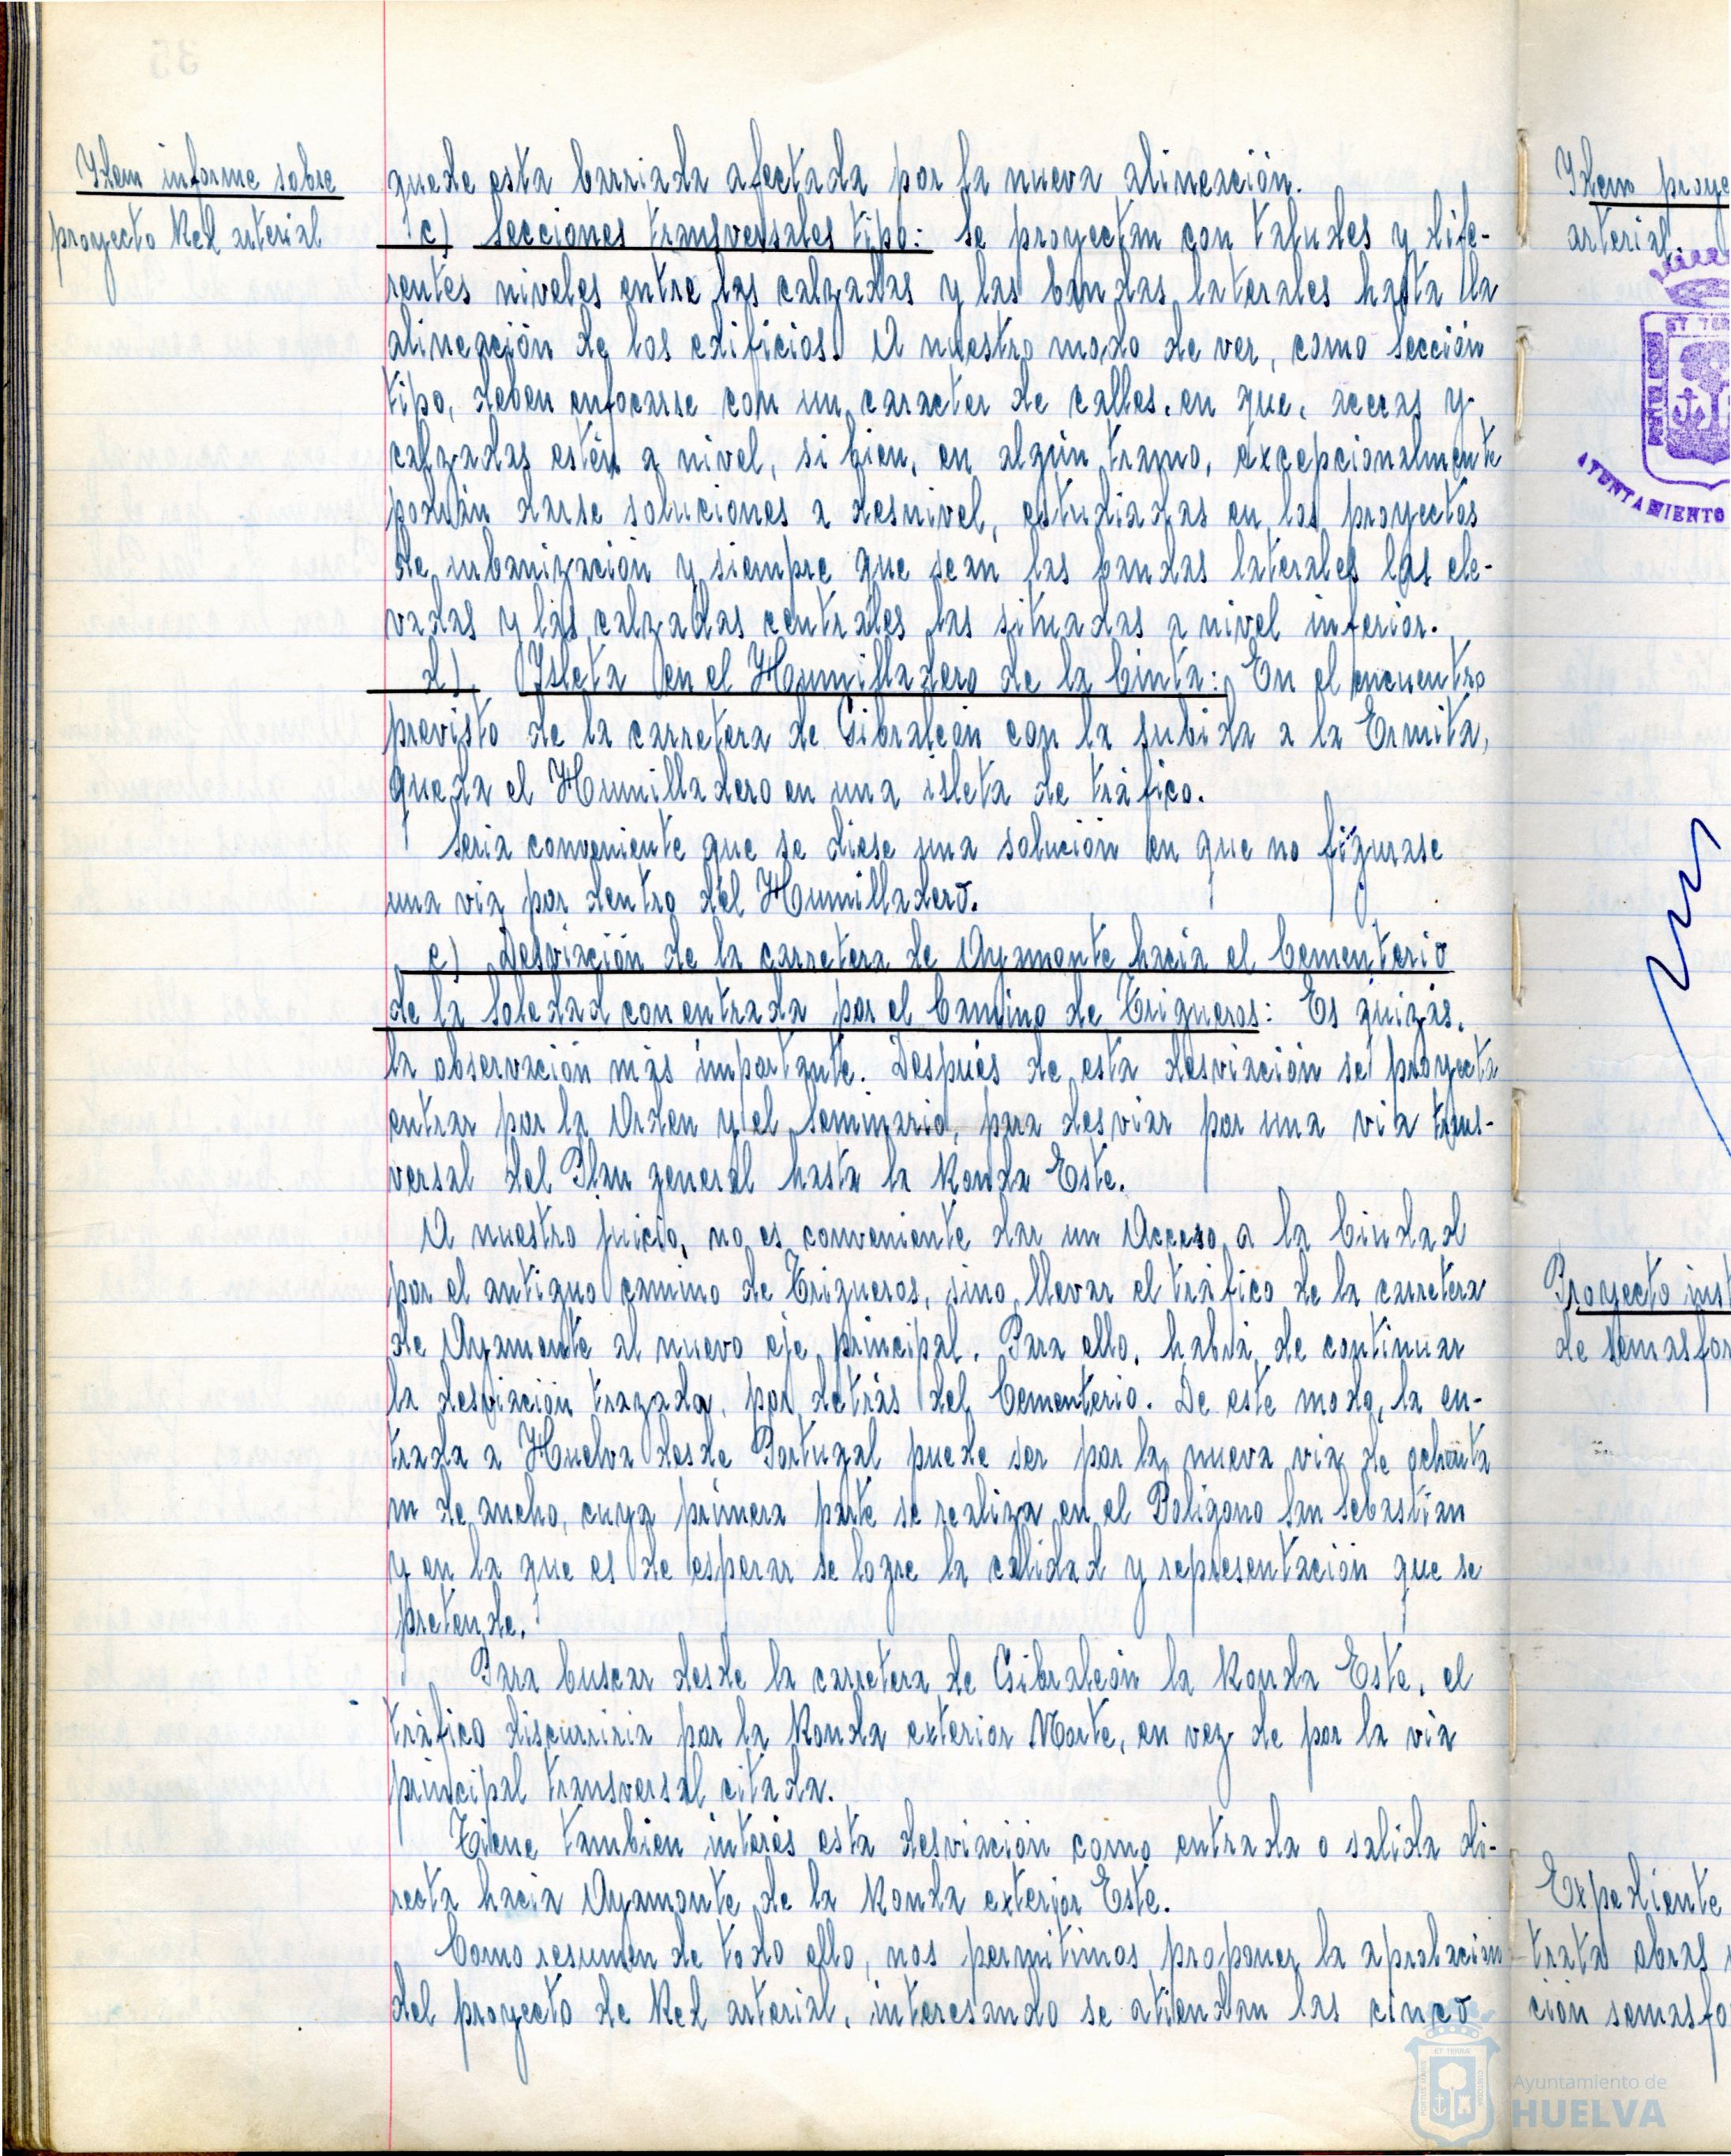 Idem informe sobre
proyecto Red arterial
quede esta barriada afectada por la nueva alineación.
c) Secciones transversales tipo: Se proyectan con taludes y dife-
rentes niveles entre las calzadas y las bandas laterales hasta la
alineación de los edificios. A nuestro modo de ver, como sección
tipo, deben enfocarse con un caracter de calles, en que, aceras y
calzadas estén a nivel, si bien, en algún tramo, excepcionalmente
podrán darse soluciones a desnivel, estudiadas en los proyectos
de urbanización y siempre que sean las bandas laterales las ele-
vadas y las calzadas centrales las situadas a nivel inferior.
d) Isleta en el Humilladero de la Cinta: En el encuentro
previsto de la carretera de Gibraleón con la subida a la Ermita,
queda el Humilladero en una isleta de tráfico.
Sería conveniente que se diese una solución en que no figurase
una vía por dentro del Humilladero.
e) Desviación de la carretera de Ayamonte hacia el Cementerio
de la Soledad con entrada por el Camino de Trigueros: Es quizás,
la observación más importante. Después de esta desviación se proyecta
entrar por la Orden y el Seminario, para desviar por una vía trans-
versal del Plan general hasta la Ronda Este.
A nuestro juicio, no es conveniente dar un Acceso a la Ciudad
por el antiguo camino de Trigueros, sino llevar el tráfico de la carretera
de Ayamonte al nuevo eje principal. Para ello, habrá de continuar
la desviación trazada, por detrás del Cementerio. De este modo, la en-
trada a Huelva desde Portugal puede ser por la nueva vía de ochenta
m de ancho, cuya primera parte se realiza en el Polígono San Sebastián
y en la que es de esperar se logre la calidad y representación que se
pretende.
Para buscar desde la carretera de Gibraleón la Ronda Este, el
tráfico discurriría por la Ronda exterior Norte, en vez de por la vía
principal transversal citada.
Tiene también interés esta desviación como entrada o salida di-
recta hacia Ayamonte de la Ronda exterior Este.
Como resumen de todo ello, nos permitimos proponer la aprobación
del proyecto de Red arterial, interesando se atiendan las cinco
Idem proye
arterial.
ET TERR
AYUNTAMIENTO
Proyecto inst
de semasfor
Expediente
trata obras
ción semasfo
Ayuntamiento de
HUELVA